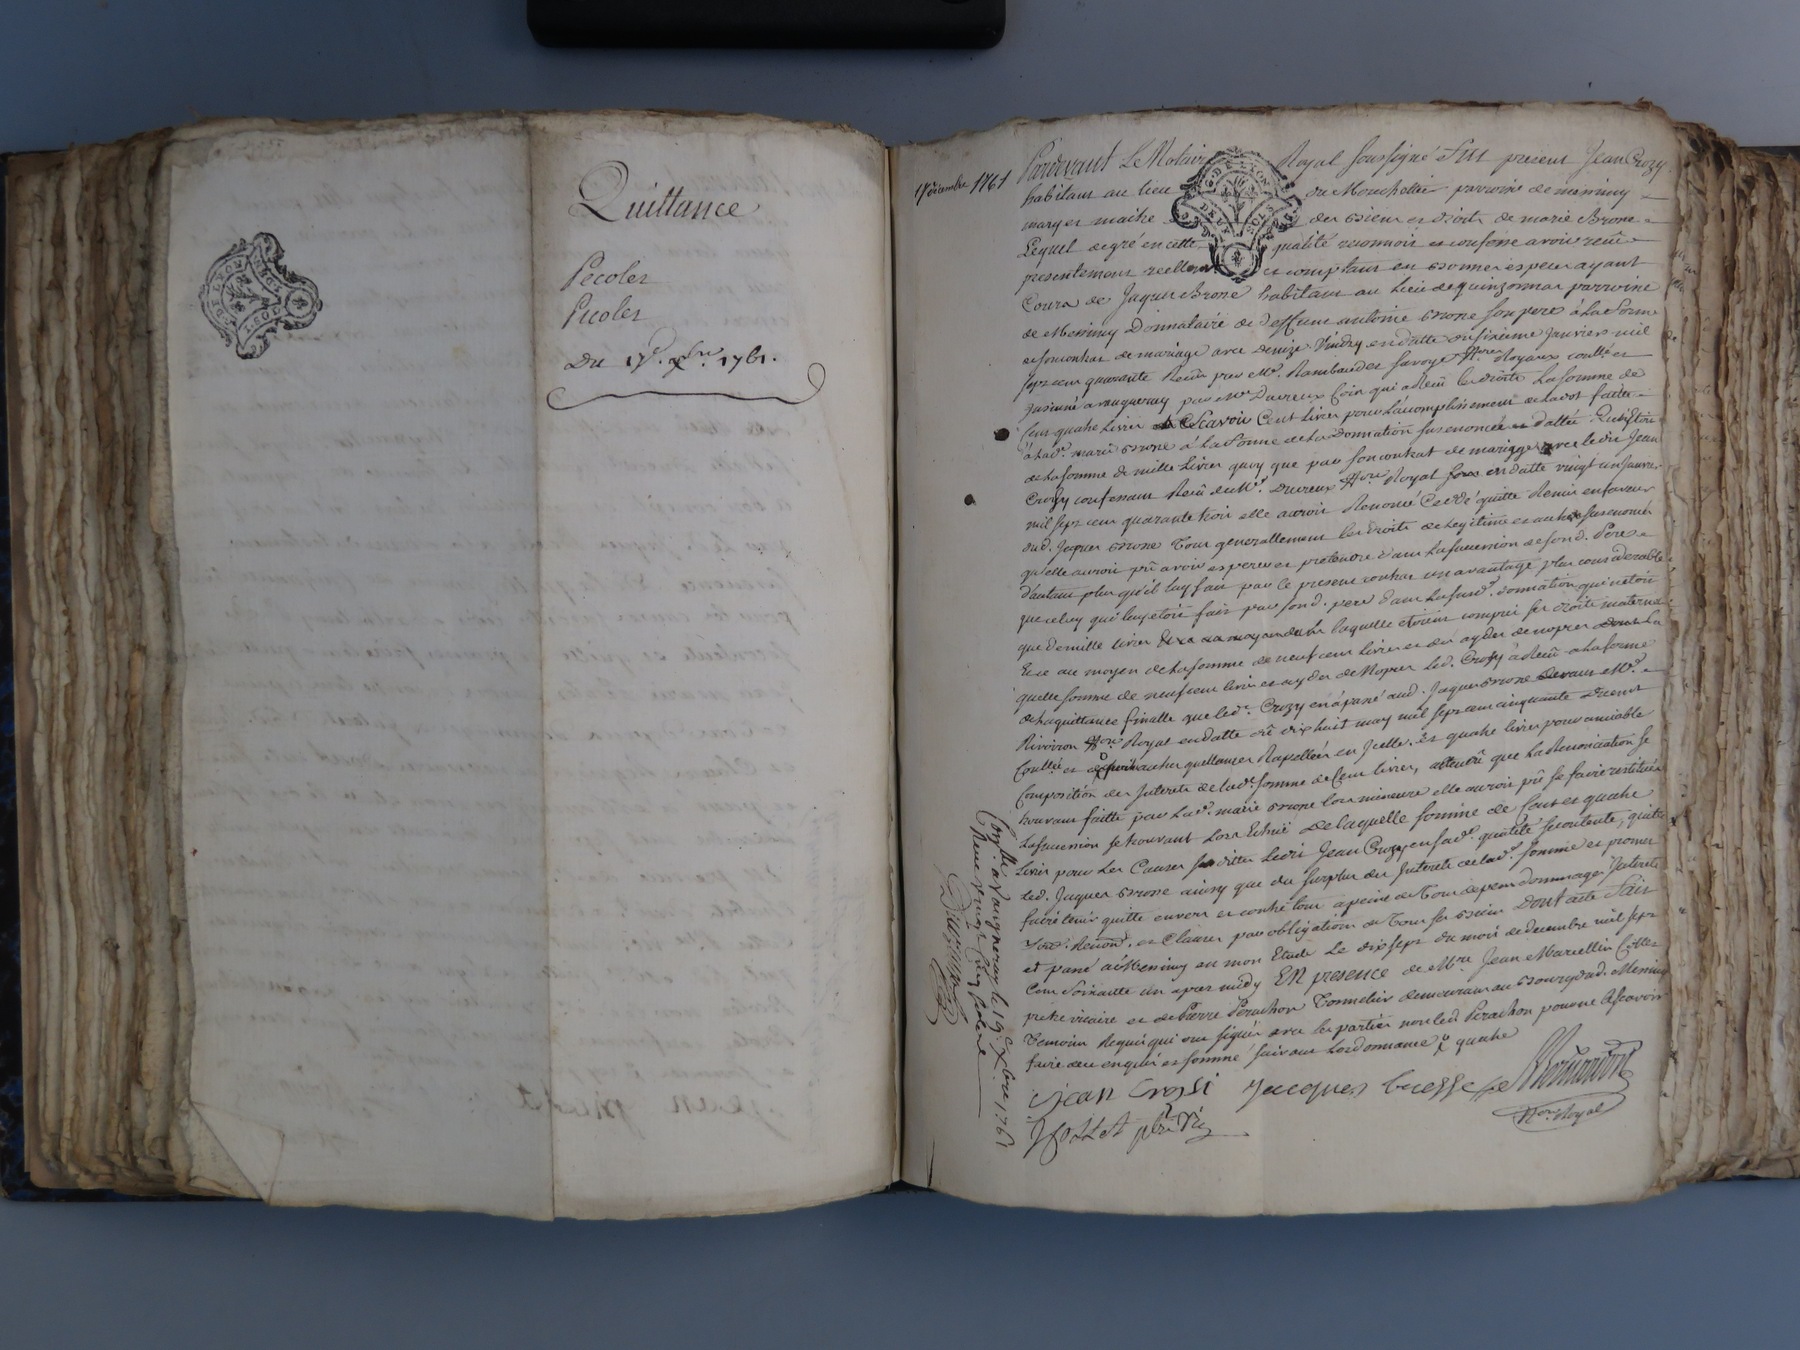 Quittance
Pecoler
Picoler
Du 17e. xbre. 1761.
17 decembre 1761
Pardevant Le Notaire Royal soussigné Fut present Jean Crozy
habitant au lieu du Mouchettin parroisse de messimy
mary et maitre des biens et droits de marie Brone
Lequel degré en cette qualité reconnoit et confesse avoir reçû
presentement reellement et comptant en bonnes especes ayant
Cours de Jaques Brone habitant au Lieu de quinsonnas parroisse
de Messimy Donnataire de deffunt antoine Brone son pere à La forme
de son contrat de mariage avec Denize Vindry en datte du sixieme Janvier mil
sept cent quarante Recû par Me. Rambaud et Savoye Nres. Royaux conllé et
Insinué a vaugneray par Me. Devreux Coin qui a Recû les droits La somme de
Cent quatre Livres Scavoir Cent Livres pour L'accomplissement de la dot faitte
à Lad. marie Brone à La forme de La Donnation susenoncée et dattée
de La somme de mille Livres quoy que par son contrat de mariage avec led. Jean
Crozy confessant Recû de Me. Devreux Nre. Royal en datte vingt un Janvier
mil sept cent quarante trois elle auroit Renoncé Cedé quitte Remis en faveur
dud. Jaques Brone Tous generallement les droits de Legitime et autres susenoncés
qu'elle auroit pû avoir esperer et pretendre dans La succession de sond. Pere
d'autant plus qu'il luy fait par le present contrat un avantage plus considerable
que celuy qui luy etoit fait par sond. pere dans La susd. donnation qui n'etoit
que de mille Livres dans laquelle etoient compris ses droits maternels
Et ce au moyen de La somme de neuf cent Livres et des ayder de nopces La
quelle somme de neuf cent livres et ayder de Nopces Led. Crozy à Recû a la forme
de La quittance finalle que led. Crozy en a passé aud. Jaques Brone devant Me.
Rivoiron Nre. Royal en datte du dix huit may mil sept cent cinquante duement
Conllée et autres quittances Rapellées en Icelle. Et quatre livres pour amiable
Composition des Interets de lad. somme de Cent livres, attendû que La Renonciation se
trouvant faitte par Lad. marie Brone lors mineure elle auroit pû se faire restituer
La succession se trouvant Lors Echue De laquelle somme de Cent et quatre
Livres pour Les Causes susdittes Ledit Jean Crozy en sad. qualité se contente, quitte
Led. Jaques Brone ainsy que du surplus des Interets de lad. somme et promet
faire tenir quitte envers et contre tous a peine de Tous depens dommages Interets
Ren. et Clauses par obligation de Tous ses biens Dont acte Fait
et passé à Messimy en mon Etude Le dix sept du mois de decembre mil sept
Cent Soixante Un apres midy En presence de Mre. Jean Marcellin Collet
pretre vicaire et de Pierre Perachon Tonnelier demeurant au Bourg dud. Messimy
Temoins Requis qui ont signés avec les parties non led. Perachon pour ne le scavoir
faire de ce enquis et sommé suivant Lordonnance quatre
jean Crossi Jacques
Collet ptre Vic
Nre. Royal
Conllé a Vaugneray le 19e. Xbre 1761
Reçu